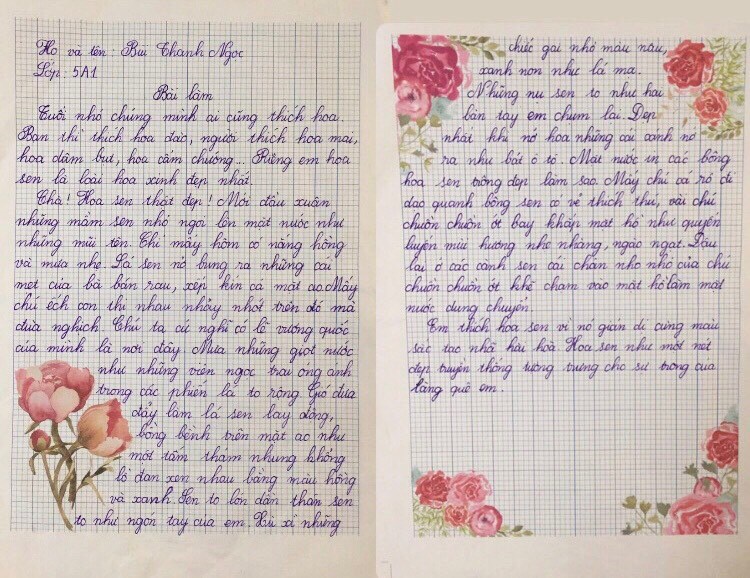 Họ và tên : Bùi Thanh Ngọc
Lớp : 5A1
Bài làm
Tuổi nhỏ chúng mình ai cũng thích hoa.
Bạn thì thích hoa đào, người thích hoa mai,
hoa dâm bụt, hoa cẩm chướng... Riêng em hoa
sen là loài hoa xinh đẹp nhất.
Chà! Hoa sen thật đẹp! Mỗi đầu xuân
những mầm sen nhỏ ngoi lên mặt nước như
những mũi tên. Chỉ mấy hôm có nắng hồng
và mưa nhẹ. Lá sen nở bung ra những cái
mẹt của bà bán rau, xếp kín cả mặt ao. Mấy
chú ếch con thi nhau nhảy nhót trên đó mà
đùa nghịch. Chú ta cứ nghĩ có lẽ vương quốc
của mình là nơi đây. Mưa những giọt nước
như những viên ngọc trai óng ánh
trong các phiến lá to rộng. Gió đưa
đẩy làm lá sen lay động,
bồng bềnh trên mặt ao như
một tấm thảm nhung khổng
lồ đan xen nhau bằng màu hồng
và xanh. Sen to lớn dần thân sen
to như ngón tay của em. Xù xì những
chiếc gai nhỏ màu nâu,
xanh non như lá mạ.
Những nụ sen to như hai
bàn tay em chụm lại. Đẹp
nhất khi nở hoa những cái xanh nở
ra như bát ô tô. Mặt nước in các bông
hoa sen trông đẹp làm sao. Mấy chú cá rô đi
dạo quanh bông sen có vẻ thích thú, vài chú
chuồn chuồn ớt bay khắp mặt hồ như quyến
luyến mùi hương nhè nhàng, ngào ngạt. Đậu
lại ở các cánh sen cái chân nho nhỏ của chú
chuồn chuồn ớt khẽ chạm vào mặt hồ làm mặt
nước dung chuyển.
Em thích hoa sen vì nó giản dị cùng màu
sắc tao nhã hài hoà. Hoa sen như một nét
đẹp truyền thống tượng trưng cho sự trong của
làng quê em.